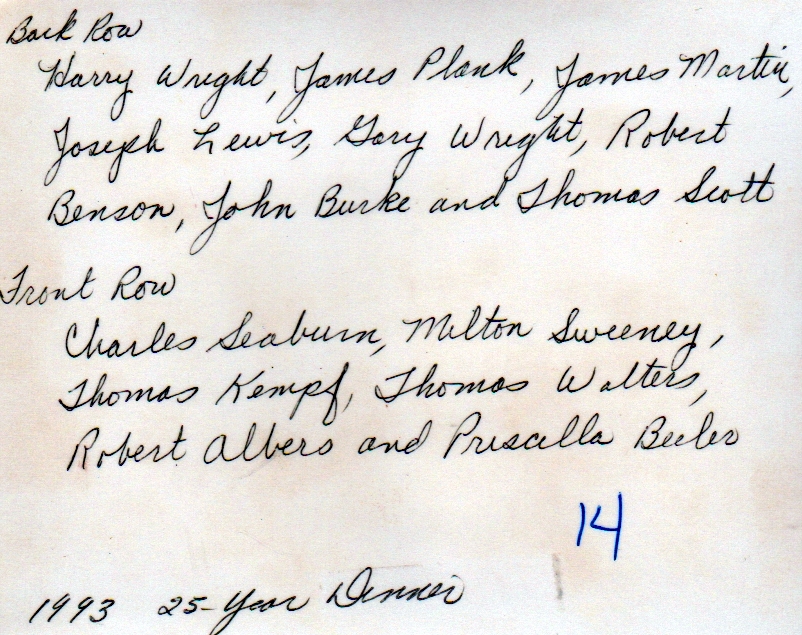 Back Row
Harry Wright, James Plank, James Martin,
Joseph Lewis, Gary Wright, Robert
Benson, John Burke and Thomas Scott
Front Row
Charles Seaburn, Milton Sweeney,
Thomas Kempf, Thomas Walters,
Robert Albers and Priscilla Beeler
14
1993 25-Year Dinner